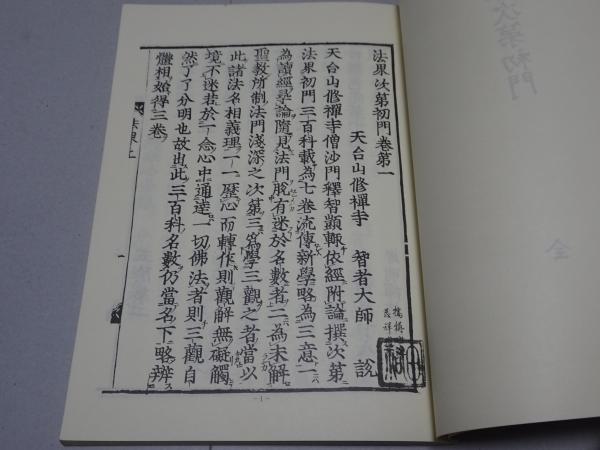 法界次第初門卷第一
天台山修禪寺 智者大師 說
天台山修禪寺僧沙門釋智顗輙依經附論撰次第
法界初門三百科載為七卷流傳新學略為三意一
為讀經尋論隨見法門脫有迷於名數者二為未解
聖教所制法門淺深之次第三為學三觀之者當以
此諸法名相義理一一歷心而轉作則觀解無礙觸
境不迷若於一念心中通達一切佛法者則三觀自
然了了分明也故出此三百科名數仍當名下略辨
體相始得三卷
法界上
一
-1-
次第初門
全